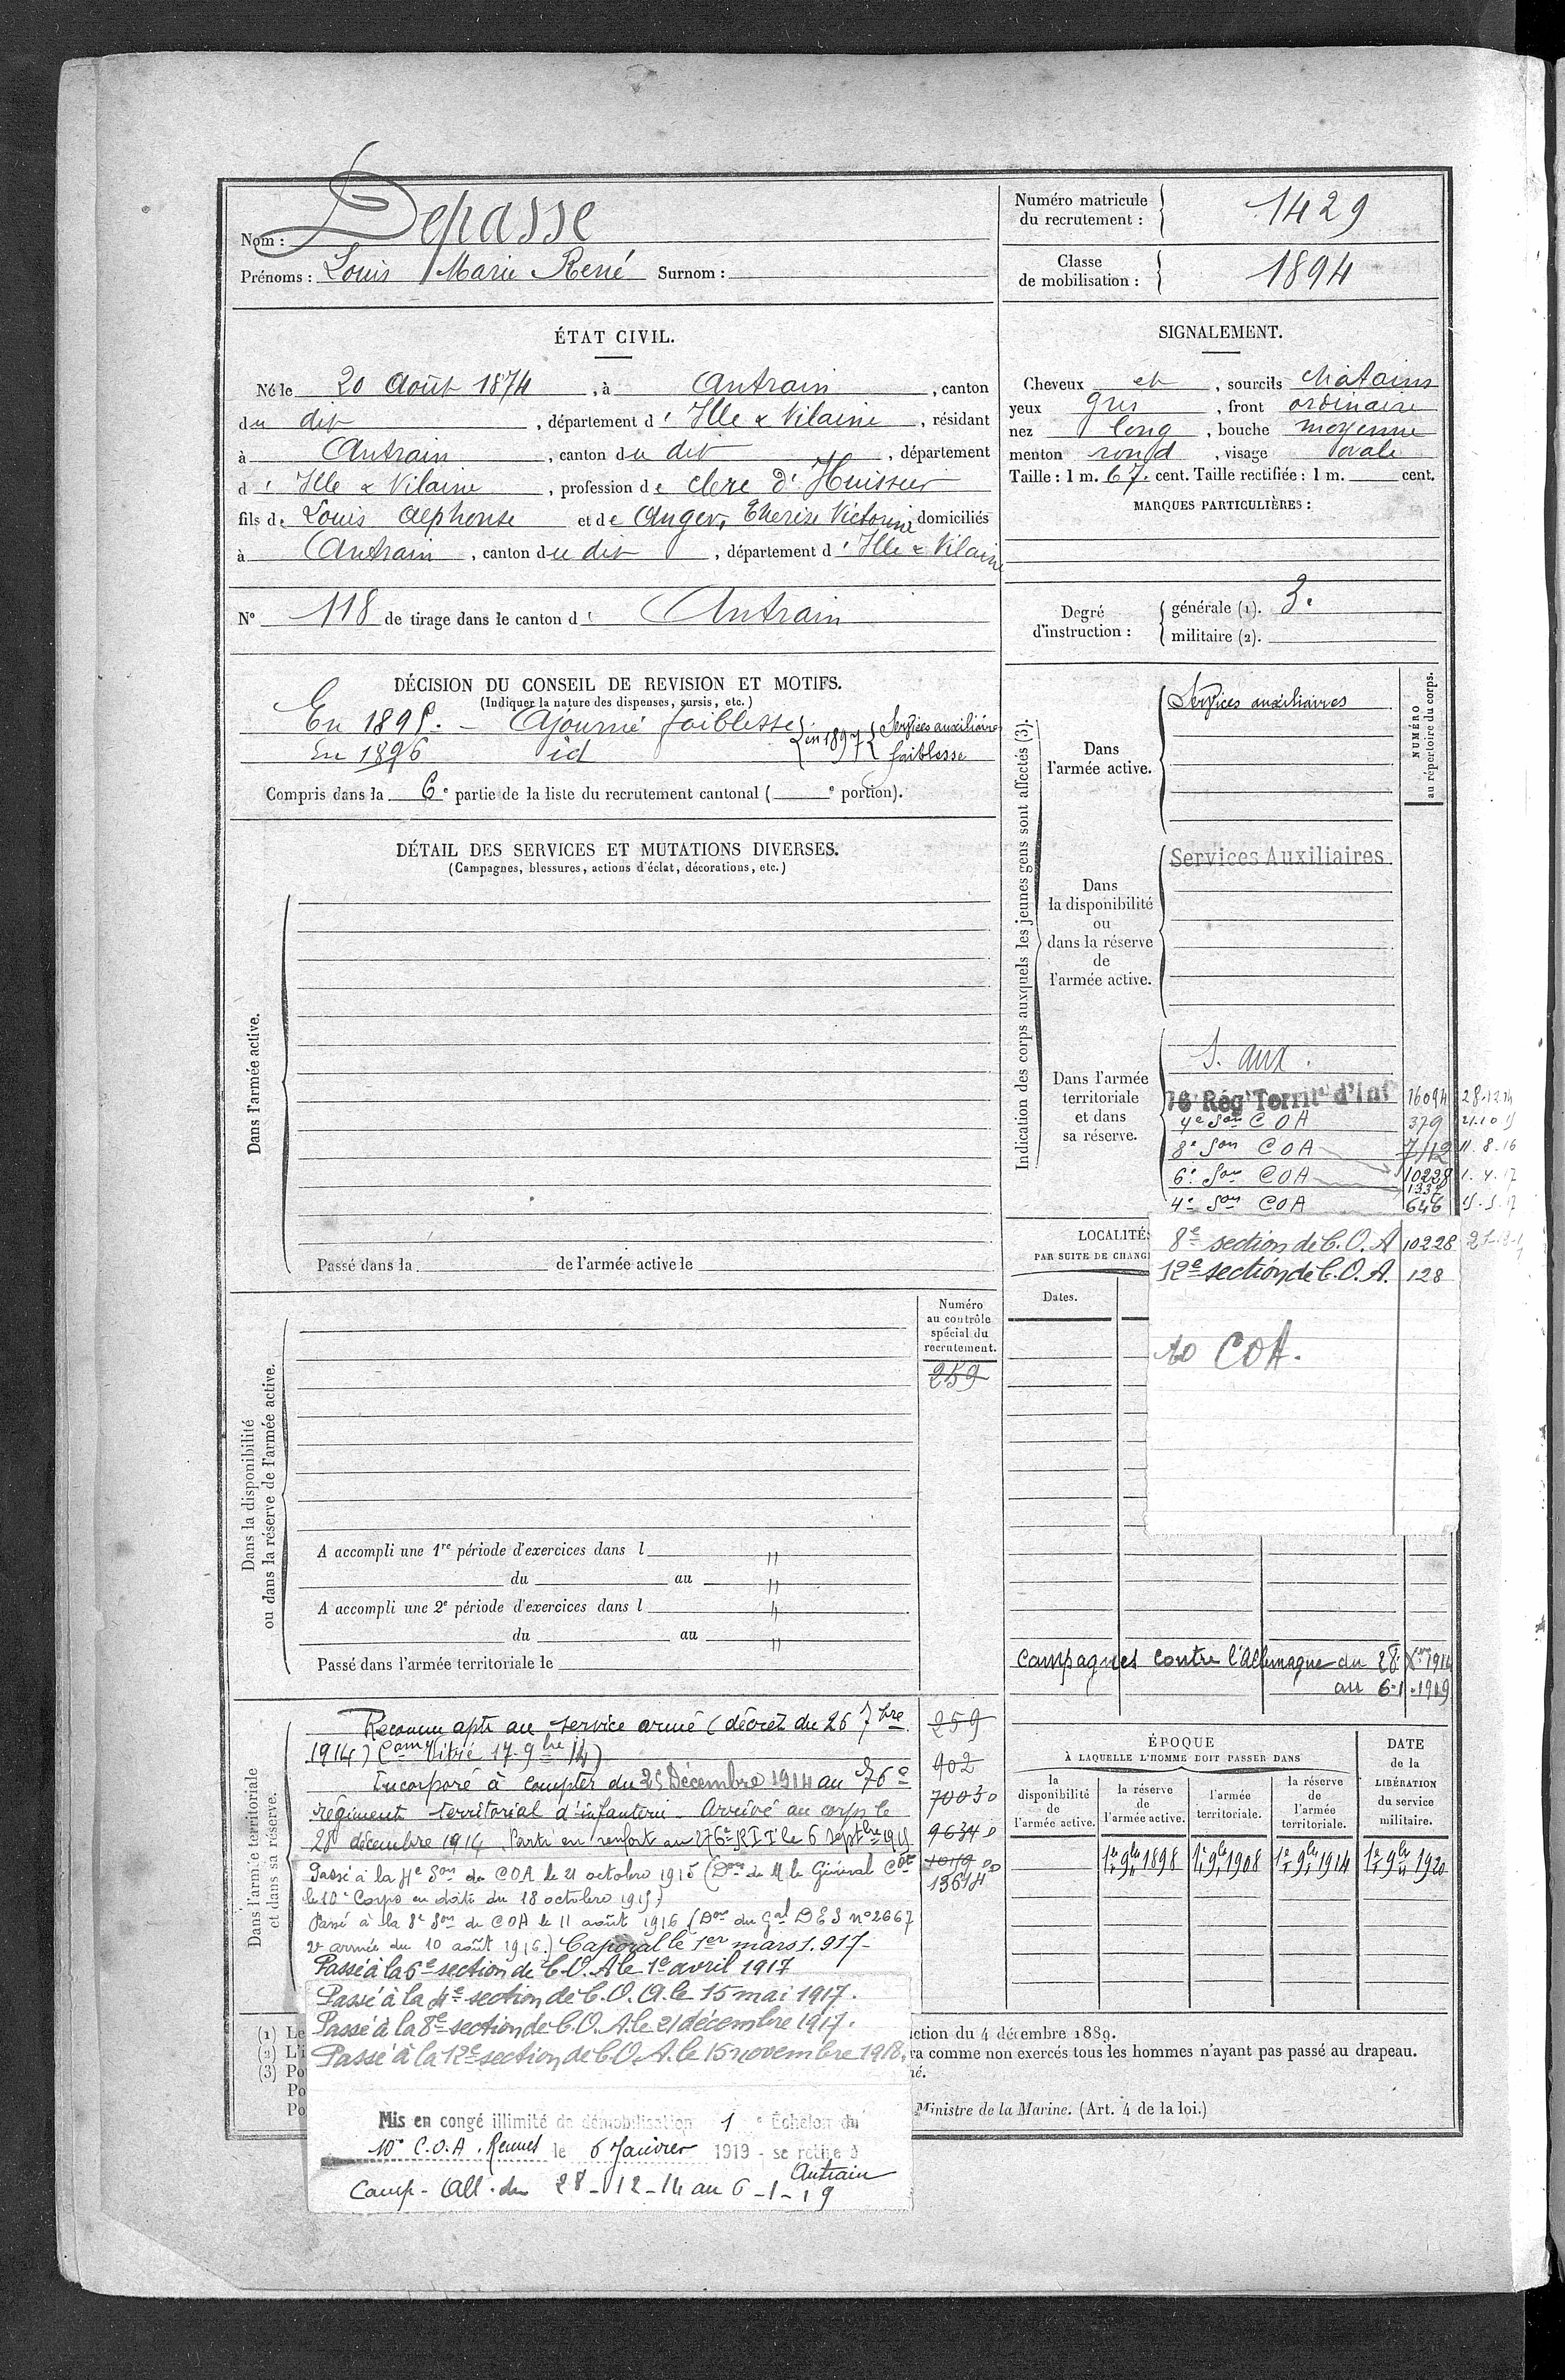 Nom : Depasse
Prénoms : Louis Marie René Surnom :
Numéro matricule
du recrutement :
1429
Classe
de mobilisation :
1894
ÉTAT CIVIL.
Né le 20 Août 1874, à Antrain, canton
du dit, département d' Ille & Vilaine, résidant
à Antrain, canton du dit, département
d' Ille & Vilaine, profession de clerc d'Huissier
fils de Louis Alphonse et de Anger, Thérèse Victorine domiciliés
à Antrain, canton du dit, département d' Ille & Vilaine
N° 118 de tirage dans le canton d' Antrain
SIGNALEMENT.
Cheveux et, sourcils chatains
yeux gris, front ordinaire
nez long, bouche moyenne
menton rond, visage ovale
Taille : 1 m. 67. cent. Taille rectifiée : 1 m. cent.
MARQUES PARTICULIÈRES :
Degré
d'instruction :
générale (1). 3.
militaire (2).
DÉCISION DU CONSEIL DE REVISION ET MOTIFS.
(Indiquer la nature des dispenses, sursis, etc.)
En 1895. - Ajourné faiblesse
En 1896 id
en 1897 Services auxiliaires
faiblesse
Compris dans la 6e partie de la liste du recrutement cantonal ( e portion).
DÉTAIL DES SERVICES ET MUTATIONS DIVERSES.
(Campagnes, blessures, actions d'éclat, décorations, etc.)
Dans l'armée active.
Passé dans la de l'armée active le
Indication des corps auxquels les jeunes gens sont affectés (3).
NUMÉRO
au répertoire du corps.
Dans
l'armée active.
Services auxiliaires
Dans
la disponibilité
ou
dans la réserve
de
l'armée active.
Services Auxiliaires
Dans l'armée
territoriale
et dans
sa réserve.
S. aux.
76e Régt Territal d'Infie 16094 28.12.14
4e Son COA 379 21.10.15
8e Son COA 7112 11.8.16
6e Son COA 10228 1.4.17
1338
4e Son COA 646 15.5.17
8e section de C.O.A 10228
12e section de C.O.A. 128
10 COA.
LOCALITÉS
PAR SUITE DE CHANG
Dates.
Dans la disponibilité
ou dans la réserve de l'armée active.
Numéro
au contrôle
spécial du
recrutement.
259
A accompli une 1re période d'exercices dans l "
du au "
A accompli une 2e période d'exercices dans l "
du au "
Passé dans l'armée territoriale le
Campagnes contre l'Allemagne du 28 Xbre 1914
au 6-1-1919
Dans l'armée territoriale
et dans sa réserve.
Reconnu apte au service armé (décret du 26 7bre
1914) (Comon Vitré 17-9bre 14)
Incorporé à compter du 28 Décembre 1914 au 76e
régiment territorial d'infanterie. Arrivé au corps le
28 décembre 1914. Parti en renfort au 276e RIT le 6 septbre 1915
Passé à la 4e Son de COA le 21 octobre 1915 (Don de M le Général Cdt
le 10e Corps en date du 18 octobre 1915)
Passé à la 8e Son de COA le 11 août 1916 (Don du Gal DES n° 2667
2e armée du 10 août 1916.) Caporal le 1er mars 1.917-
Passé à la 6e section de C.O.A le 1er avril 1917
Passé à la 4e section de C.O.A. le 15 mai 1917.
Passé à la 8e section de C.O.A. le 21 décembre 1917.
Passé à la 12e section de C.O.A. le 15 novembre 1918.
Mis en congé illimité de démobilisation 1 e Échelon du
10e C.O.A. Rennes le 6 Janvier 1919 - se retire à
Antrain
Camp - All. du 28-12-14 au 6-1-19
259
902
70050
96340
13614
ÉPOQUE
À LAQUELLE L'HOMME DOIT PASSER DANS
la
disponibilité
de
l'armée active.
la réserve
de
l'armée active.
l'armée
territoriale.
la réserve
de
l'armée
territoriale.
DATE
de la
LIBÉRATION
du service
militaire.
1er 9bre 1898 1er 9bre 1908 1er 9bre 1914 1er 9bre 1920
(1) Le
ction du 4 décembre 1889.
(2) L'i
ra comme non exercés tous les hommes n'ayant pas passé au drapeau.
(3) Po
né.
Po
Po
Ministre de la Marine. (Art. 4 de la loi.)